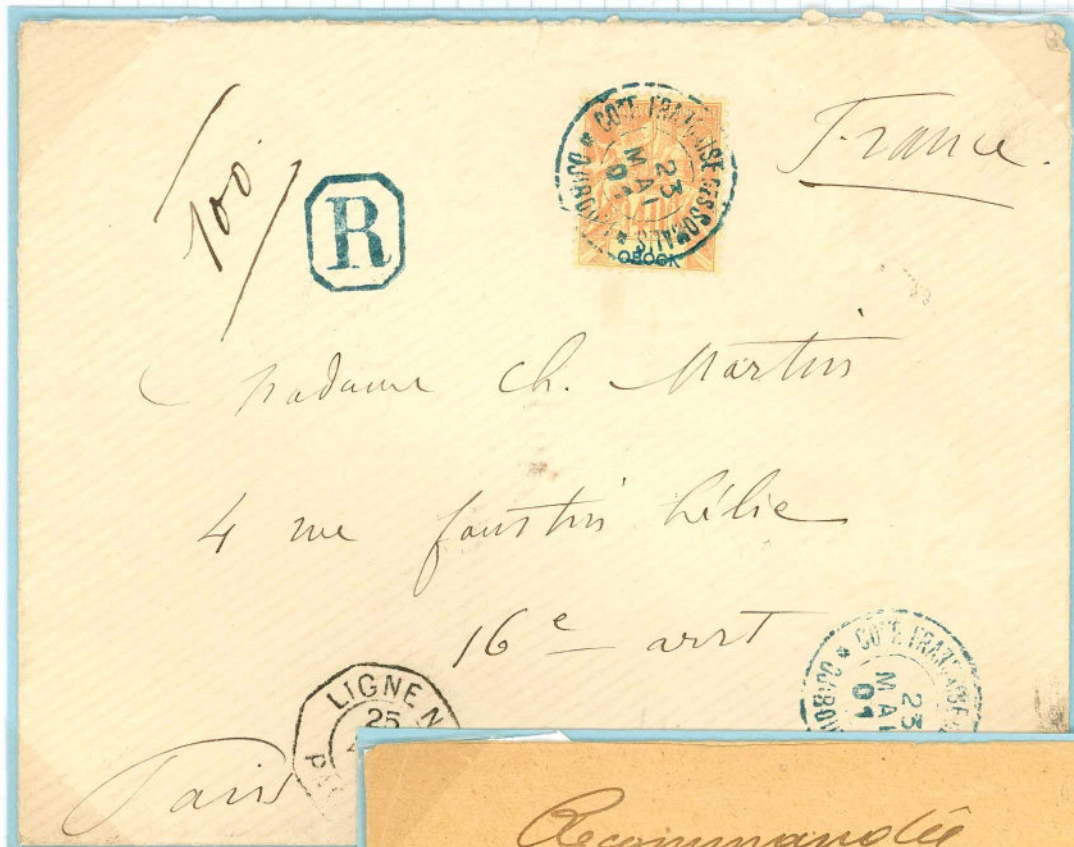 France.
100
R
COTE FRANÇAISE DES SOMALIS * DJIBOUTI *
23
MAI
01
OBOCK
Madame Ch. Martin
4 rue faustin hélie
16e arrt
Paris
LIGNE N
25
COTE FRANÇAISE
23
MAI
01
Recommandée